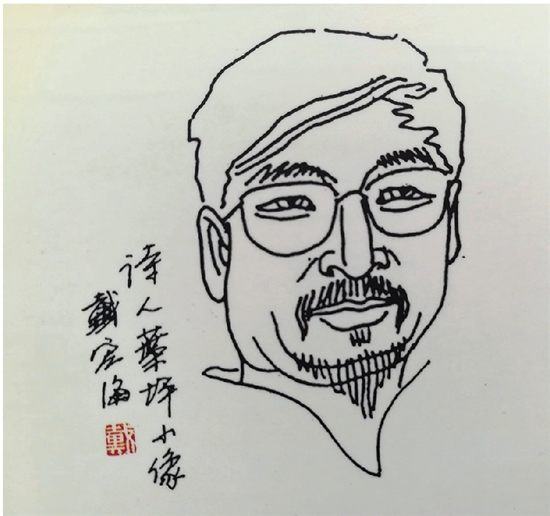 诗人葉坪小像
戴宏海
戴